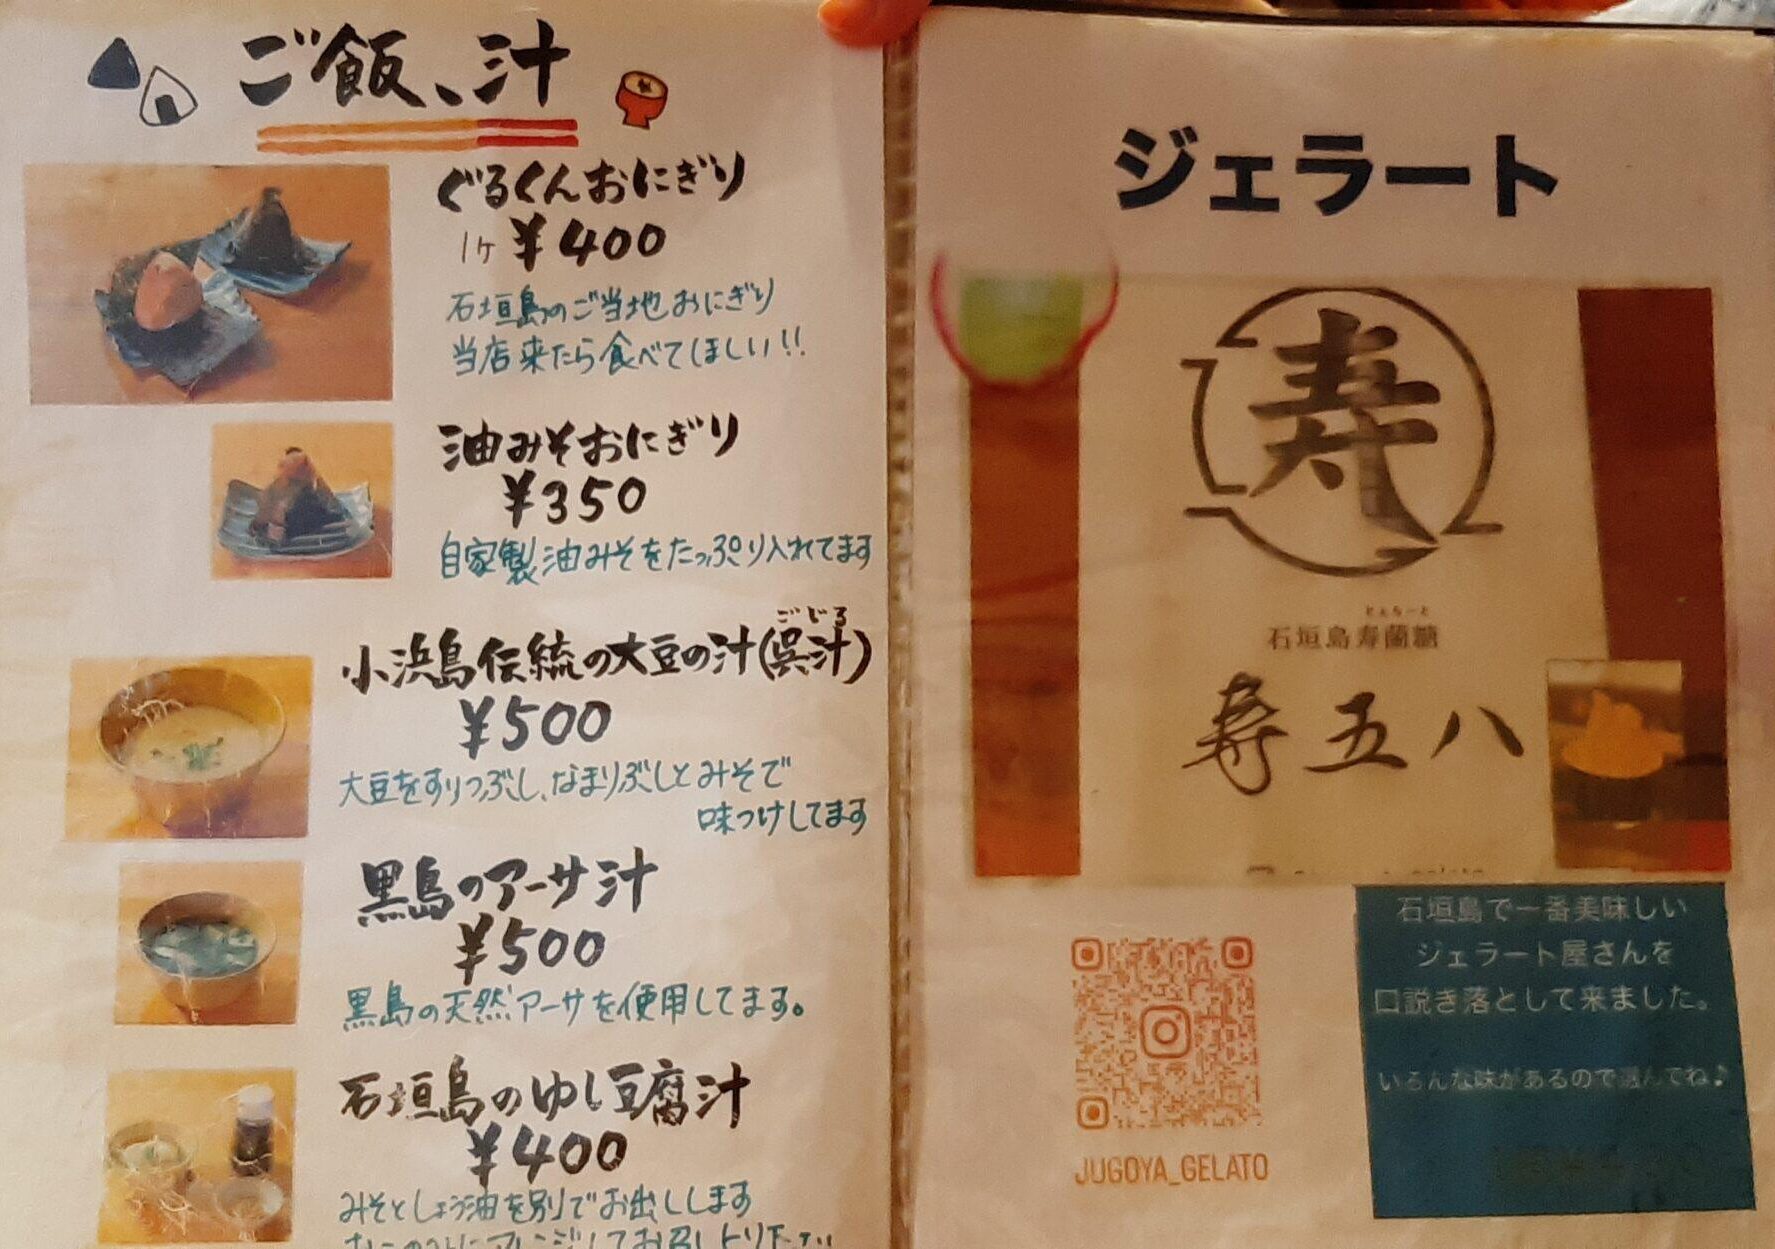 ご飯、汁
ぐるくんおにぎり
1ヶ ¥400
石垣島のご当地おにぎり
当店来たら食べてほしい!!
油みそおにぎり
¥350
自家製油みそをたっぷり入れてます
ごじる
小浜島伝統の大豆の汁(呉汁)
¥500
大豆をすりつぶし、なまりぶしとみそで
味つけしてます
黒島のアーサ汁
¥500
黒島の天然アーサを使用してます。
石垣島のゆし豆腐汁
¥400
みそとしょう油を別でお出しします
ジェラート
寿
石垣島寿蘭糖
寿五八
JUGOYA_GELATO
石垣島で一番美味しい
ジェラート屋さんを
口説き落として来ました。
いろんな味があるので選んでね♪